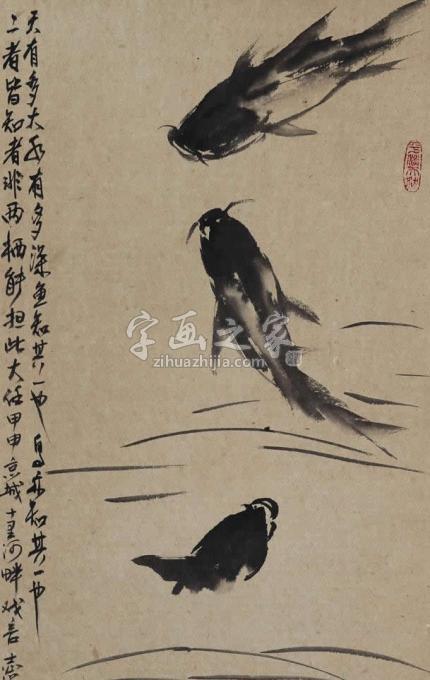 天有多大水有多深鱼知其一也 鸟亦知其一也
二者皆知者非两栖能担此大任甲申京城十里河畔戏言
字画之家
zihuazhijia.com